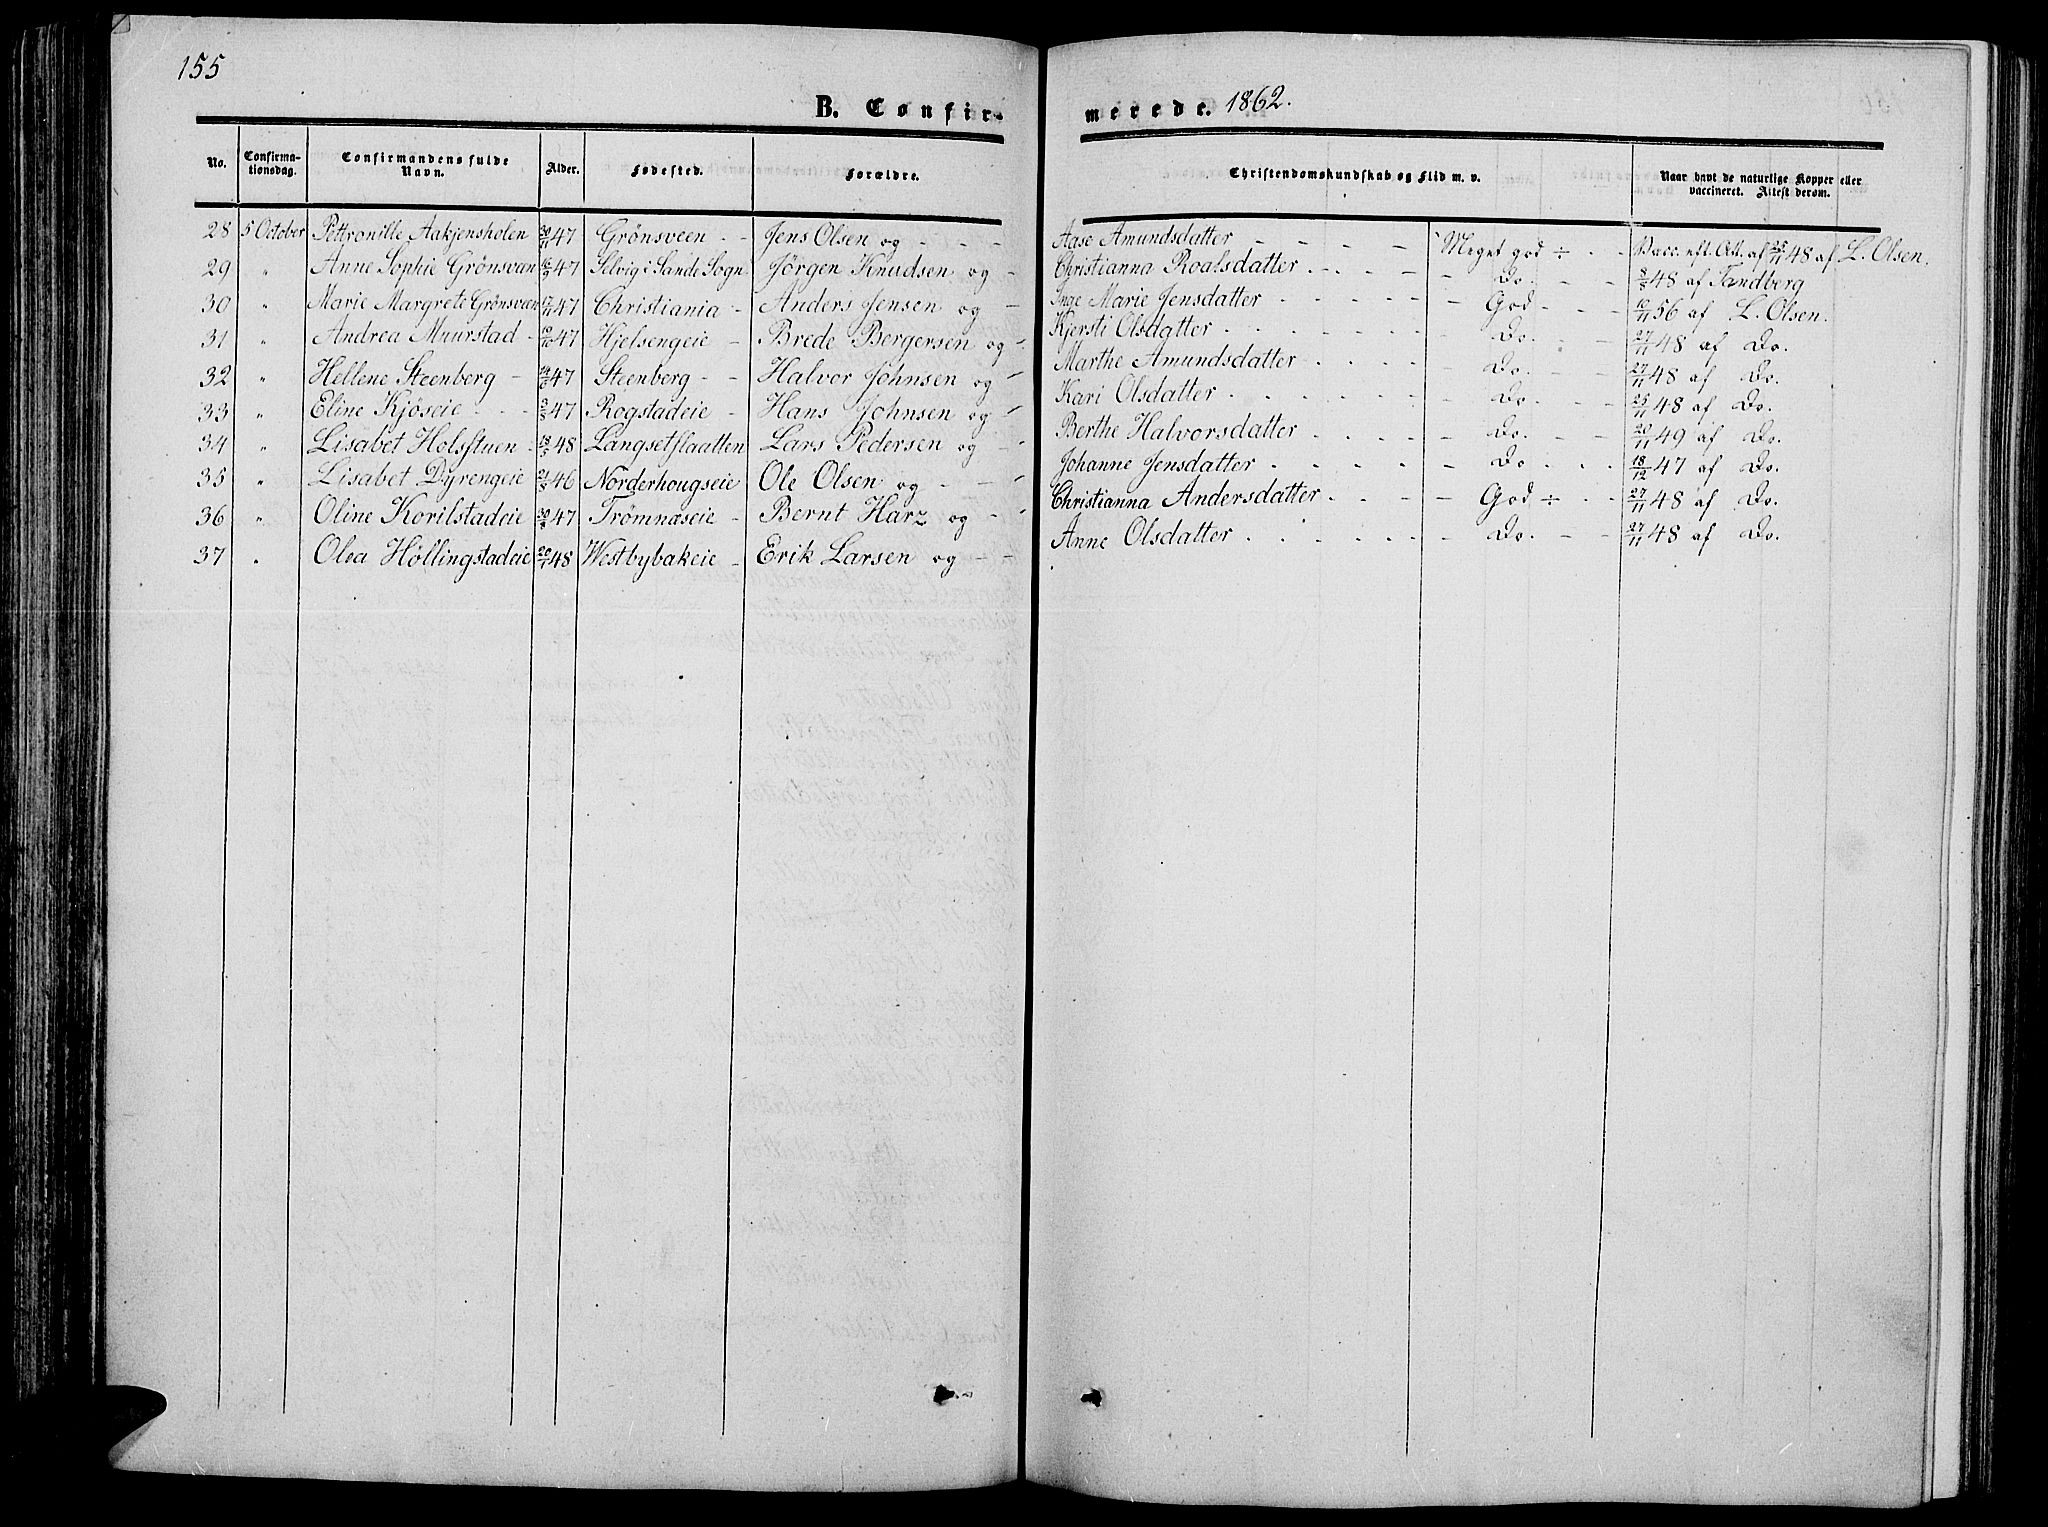 155
B. Confir-
merede. 1862.
No. Confirma-tionsdag. Confirmandens fulde Navn. Alder. Fødested. Forældre. Christendomskundskab og Flid m. v. Naar havt de naturlige Kopper eller vaccineret. Attest derom.
28 5 October Pettronille Aakjensholen 30/11 47 Grönsveen - - Jens Olsen og - - - Aase Amundsdatter - - - - - Meget god ÷ - - Vacc. eft. Att. af 25/11 48 af L. Olsen.
29 " Anne Sophie Grönsvan 47 Selvig i Sande Sogn Jörgen Knudsen og - Christianna Roalsdatter - - - - - Do. - - 8/8 48 af Tandberg
30 " Marie Margrete Grönsveen 17/11 47 Christiania - Anders Jensen og - Inge Marie Jensdatter - - - - - God - - - 10/11 56 af L. Olsen.
31 " Andrea Muurstad - 10/10 47 Hjelsengeie - Brede Bergersen og - Kjersti Olsdatter - - - - - - Do. - - 27/11 48 af Do.
32 " Hellene Steenberg - 47 Steenberg - - Halvor Johnsen og - Marthe Amundsdatter - - - - - Do. - - 27/11 48 af Do.
33 " Eline Kjöseie - - - 3/8 47 Rogstadeie - Hans Johnsen og - Kari Olsdatter - - - - - - Do. - - - 25/11 48 af Do.
34 " Lisabet Holsstuen - 48 Langsetslaatten Lars Pedersen og - Berthe Halvorsdatter - - - - - Do. - - 20/11 49 af Do.
35 " Lisabet Dyrengeie 46 Norderhougseie Ole Olsen og - - - Johanne Jensdatter - - - - - - Do - - - 18/12 47 af Do.
36 " Oline Korilstadeie 47 Trömnæseie - Bernt Harz og - - Christianna Andersdatter - - - - God ÷ - - 27/11 48 af Do.
37 " Olea Höllingstadeie 48 Westbybakeie - Erik Larsen og - - Anne Olsdatter - - - - - - Do. - - 27/11 48 af Do.